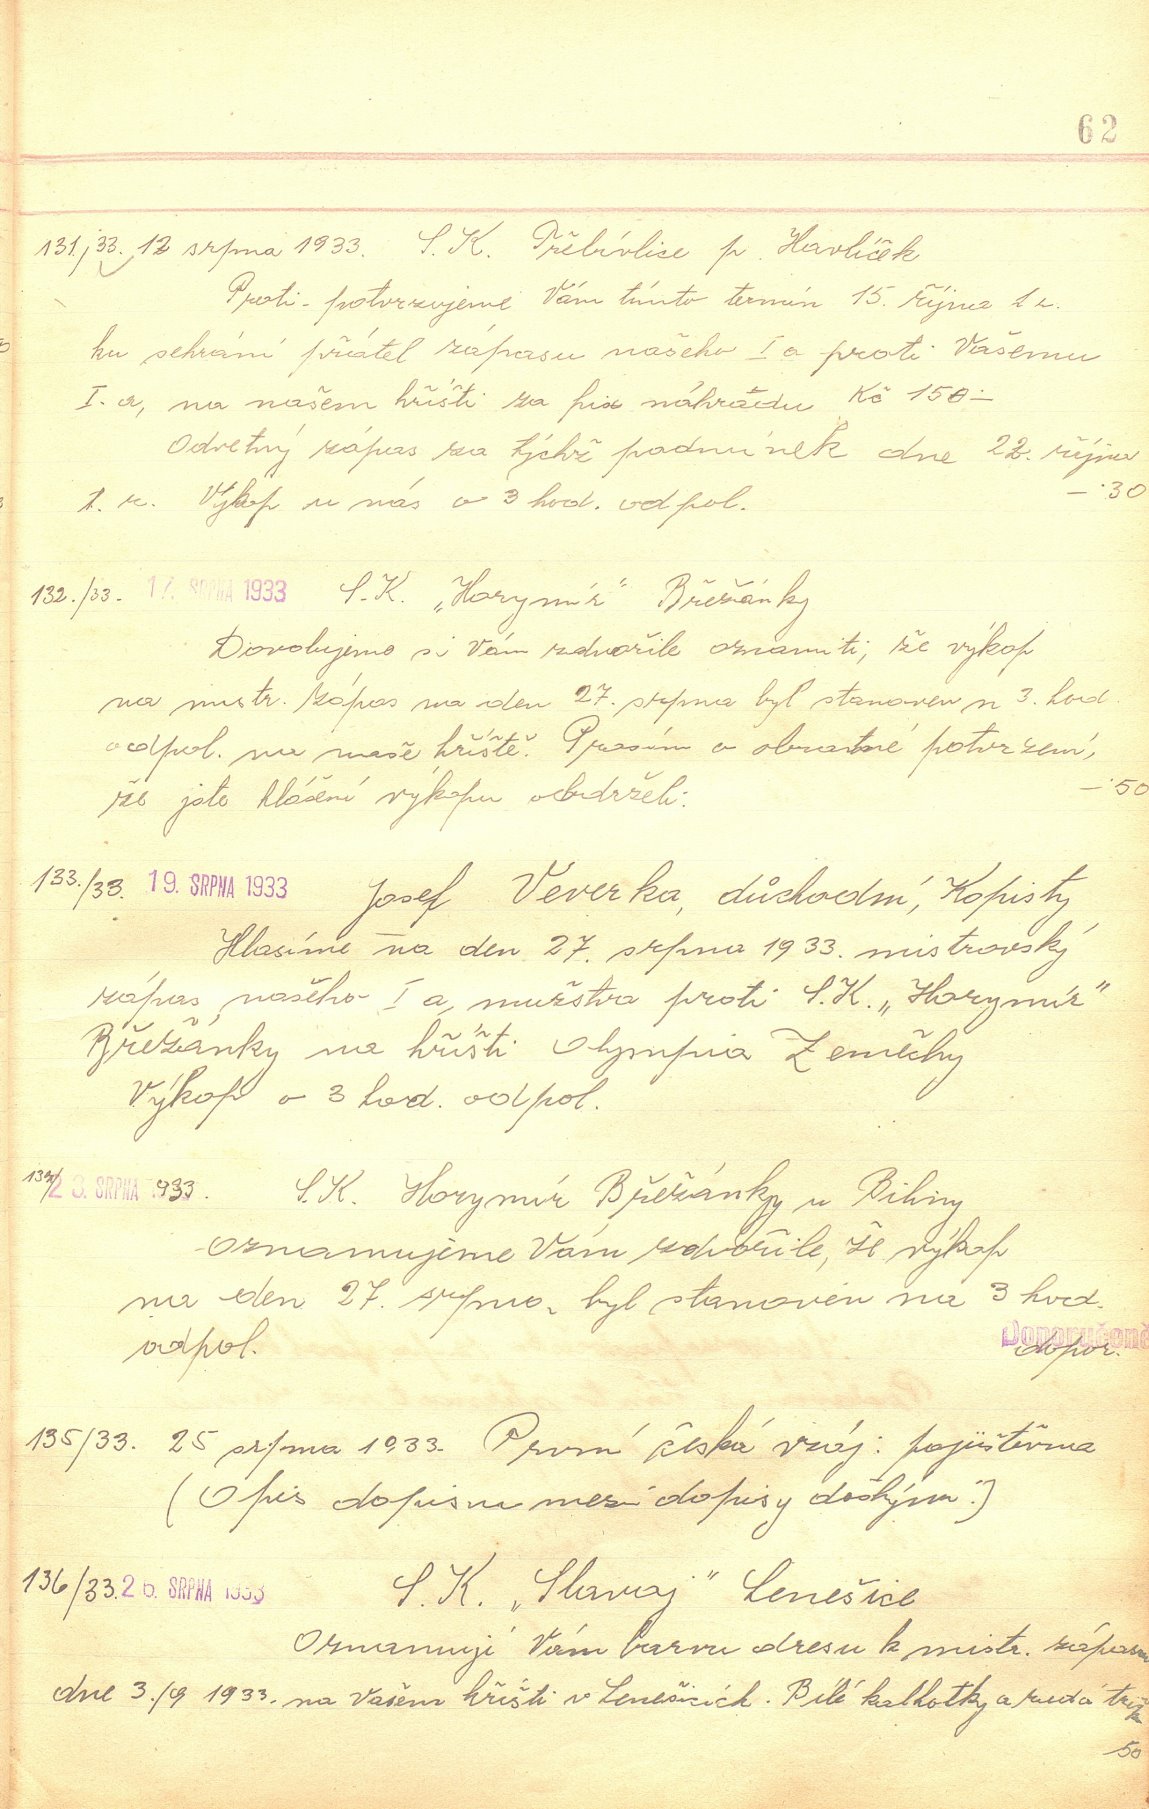 62
131./33. 12 srpna 1933. S. K. Třebívlice p. Havlíček
Proti-potvrzujeme Vám tímto termín 15. října t. r.
ku sehrání přátel zápasu našeho I a proti Vašemu
I. a, na našem hřišti za fix náhradu Kč 150.—
Odvetný zápas za týchž podmínek dne 22. října
t. r. Výkop u nás o 3 hod. odpol. —·30
132./33. 17. SRPNA 1933 S.K. „Horymír“ Břežánky
Dovolujeme si Vám zdvořile oznámiti, že výkop
na mistr. zápas na den 27. srpna byl stanoven n 3. hod.
odpol. na naše hřiště. Prosím o obratné potvrzení,
že jste hlášení výkopu obdrželi. —·50
133./33. 19. SRPNA 1933 Josef Veverka, důchodní, Kopisty
Hlasíme na den 27. srpna 1933. mistrovský
zápas našeho I a mužstva proti S.K. „Horymír“
Břežánky na hřišti Olympia Zeměchy
Výkop o 3 hod. odpol.
134/ 23. SRPNA 1933. S.K. Horymír Břežánky u Biliny
Oznamujeme Vám zdvořile, že výkop
na den 27. srpna byl stanoven na 3 hod.
odpol. Doporučeně dopor.
135/33. 25 srpna 1933. První česká vzáj. pojišťovna
(Opis dopisu mezi dopisy došlými.)
136/33. 26. SRPNA 1933 S. K. „Slavoj“ Lenešice
Oznamuji Vám barvu dresu k mistr. zápasu
dne 3./9 1933. na Vašem hřišti v Lenešicích. Bílé kalhotky a rudá trička
50